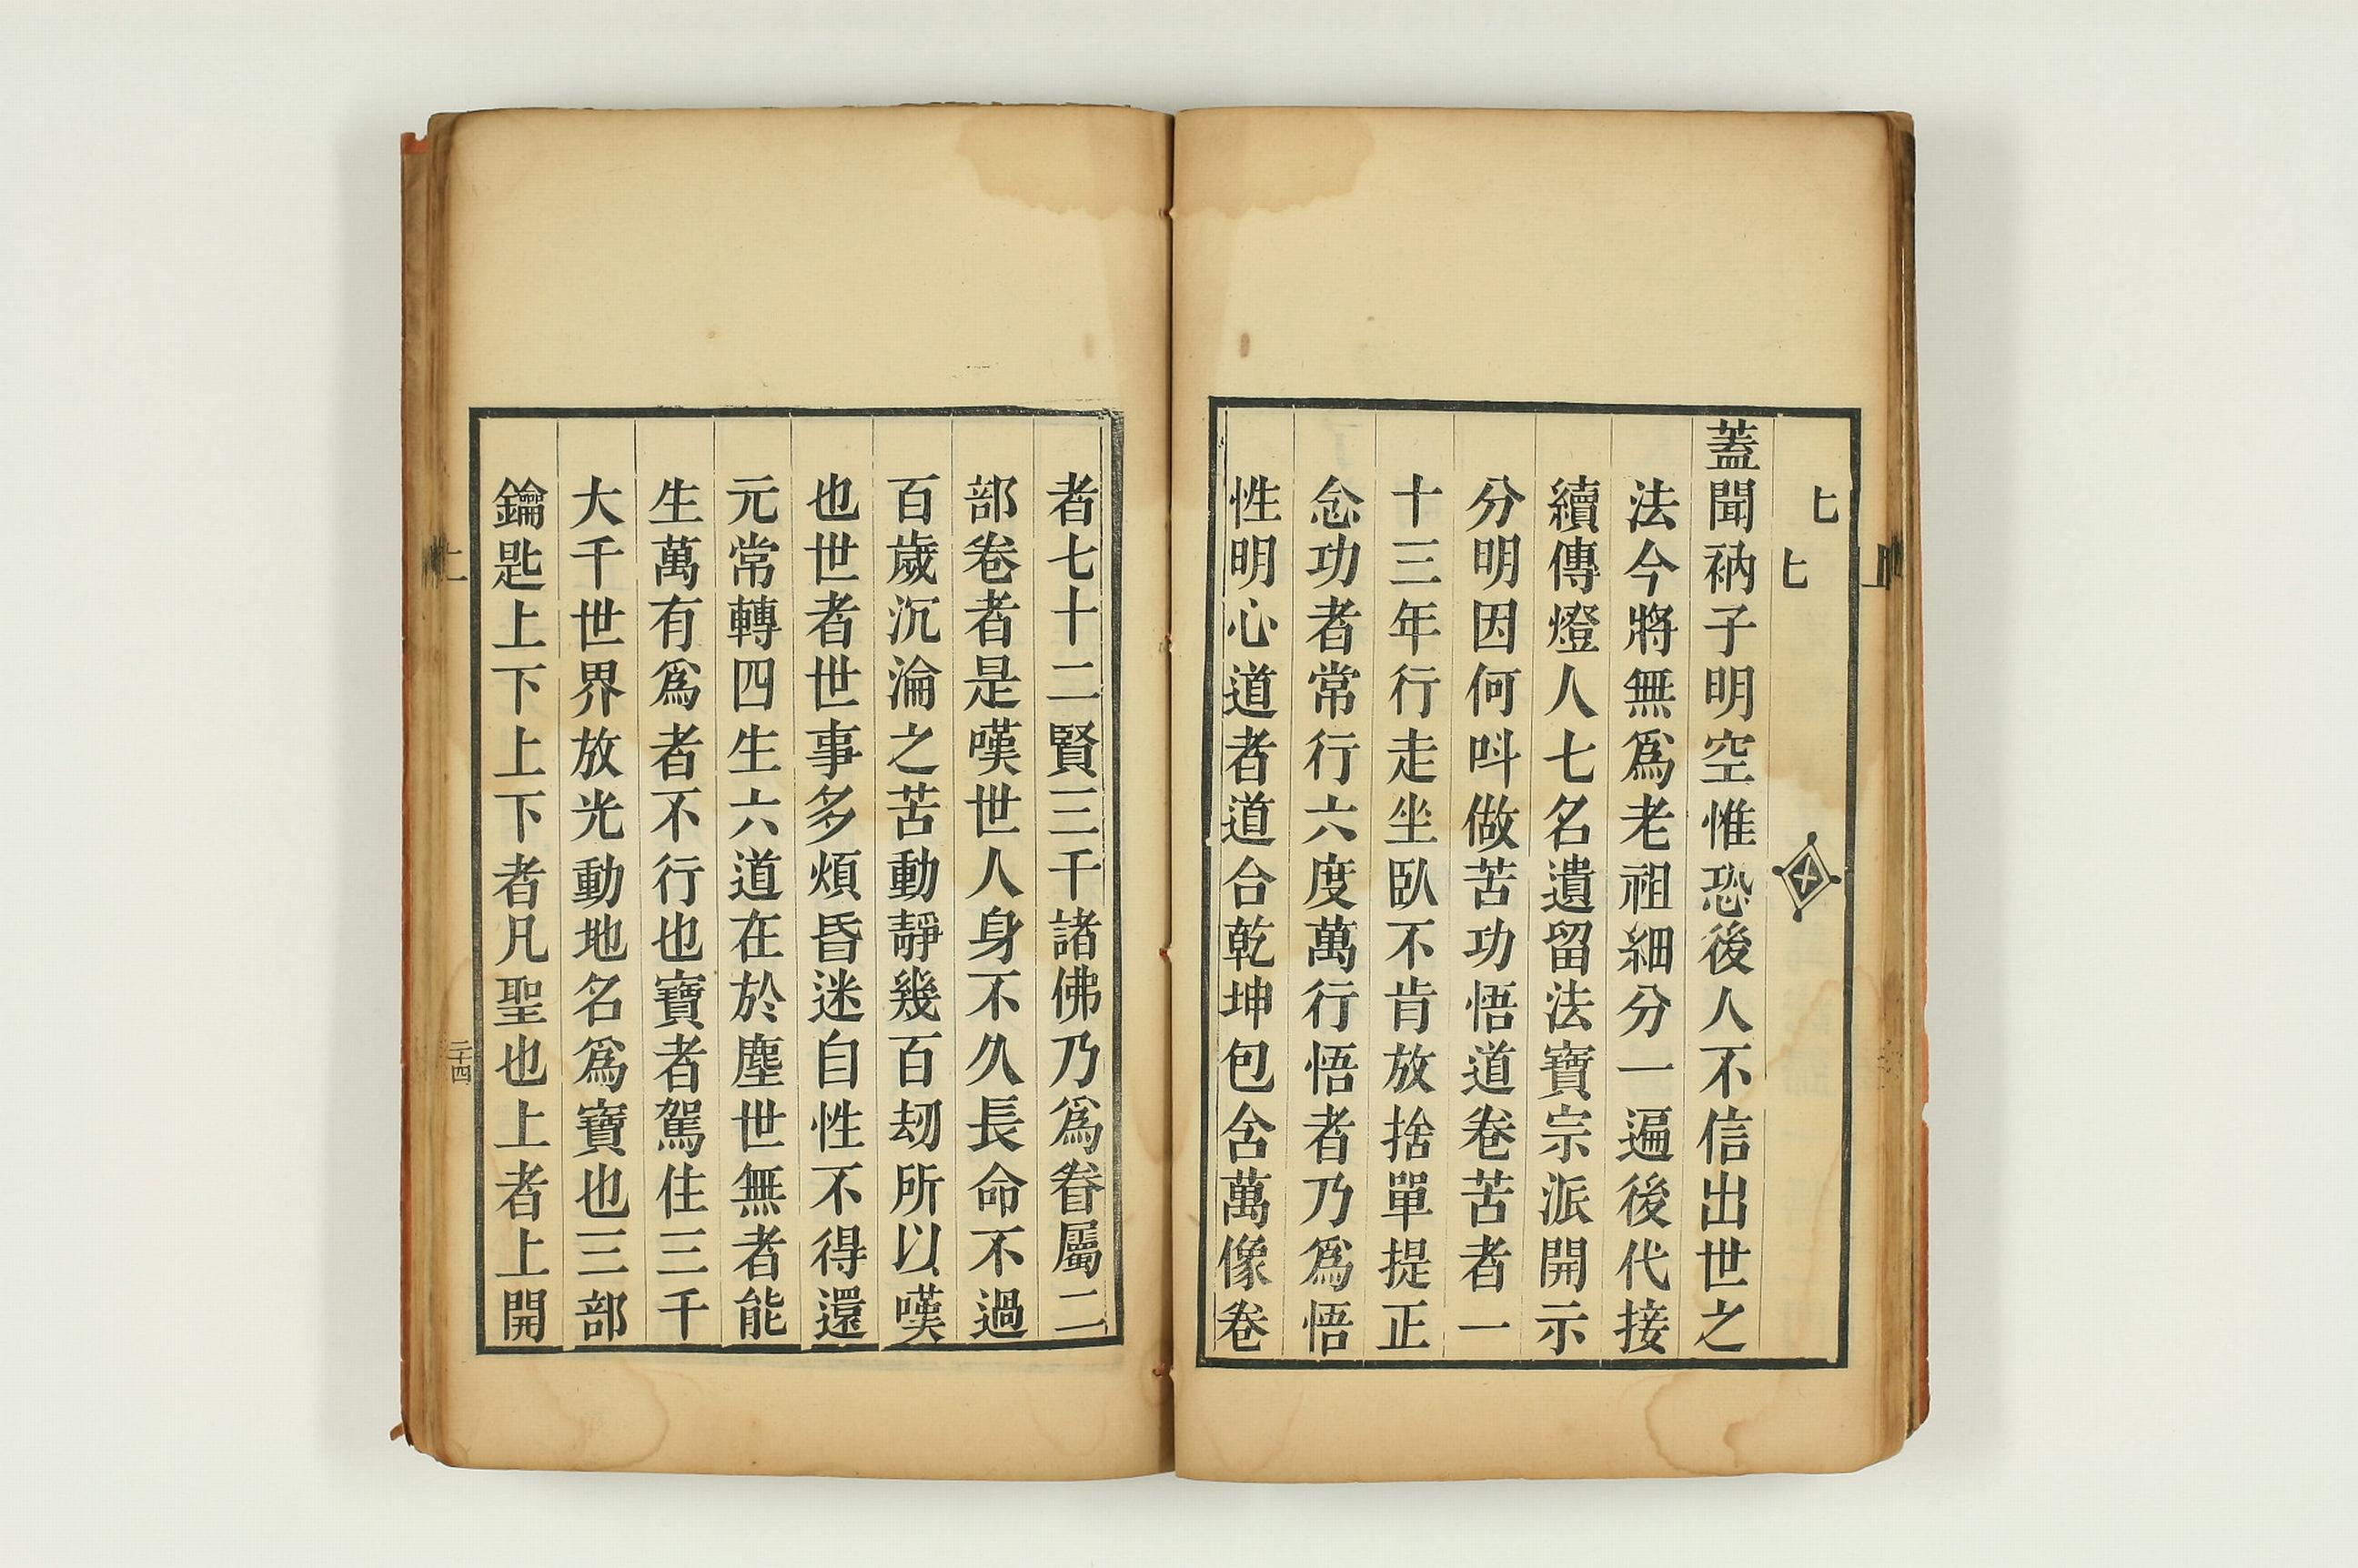 𠤎
𠤎
蓋聞衲子明空惟恐後人不信出世之
法今將無爲老祖細分一遍後代接
續傳燈人七名遺留法寶宗派開示
分明因何呌做苦功悟道卷苦者一
十三年行走坐臥不肯放捨單提正
念功者常行六度萬行悟者乃爲悟
性明心道者道合乾坤包含萬像卷
者七十二賢三千諸佛乃爲眷屬二
部卷者是嘆世人身不久長命不過
百歲沉淪之苦動靜幾百刼所以嘆
也世者世事多煩昏迷自性不得還
元常轉四生六道在於塵世無者能
生萬有爲者不行也寶者駕住三千
大千世界放光動地名爲寶也三部
鑰匙上下上下者凡聖也上者上開
上
二十四